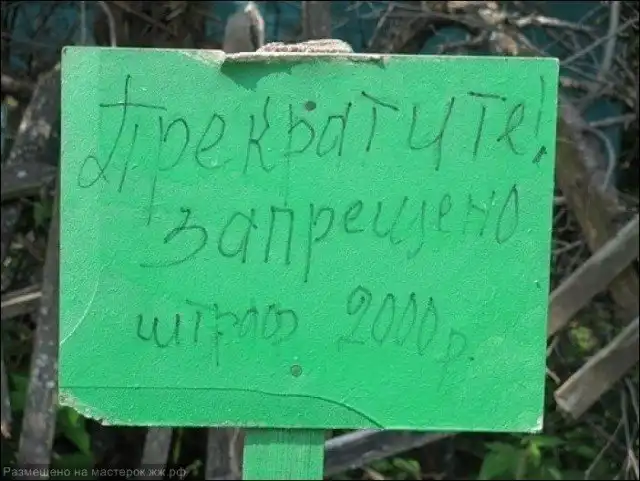 Прекратите!
запрещено
штраф 2000 р.
Размещено на мастерок.жж.рф